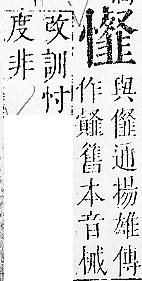 與通揚雄傳
作䪥舊本音械
改訓忖
度非